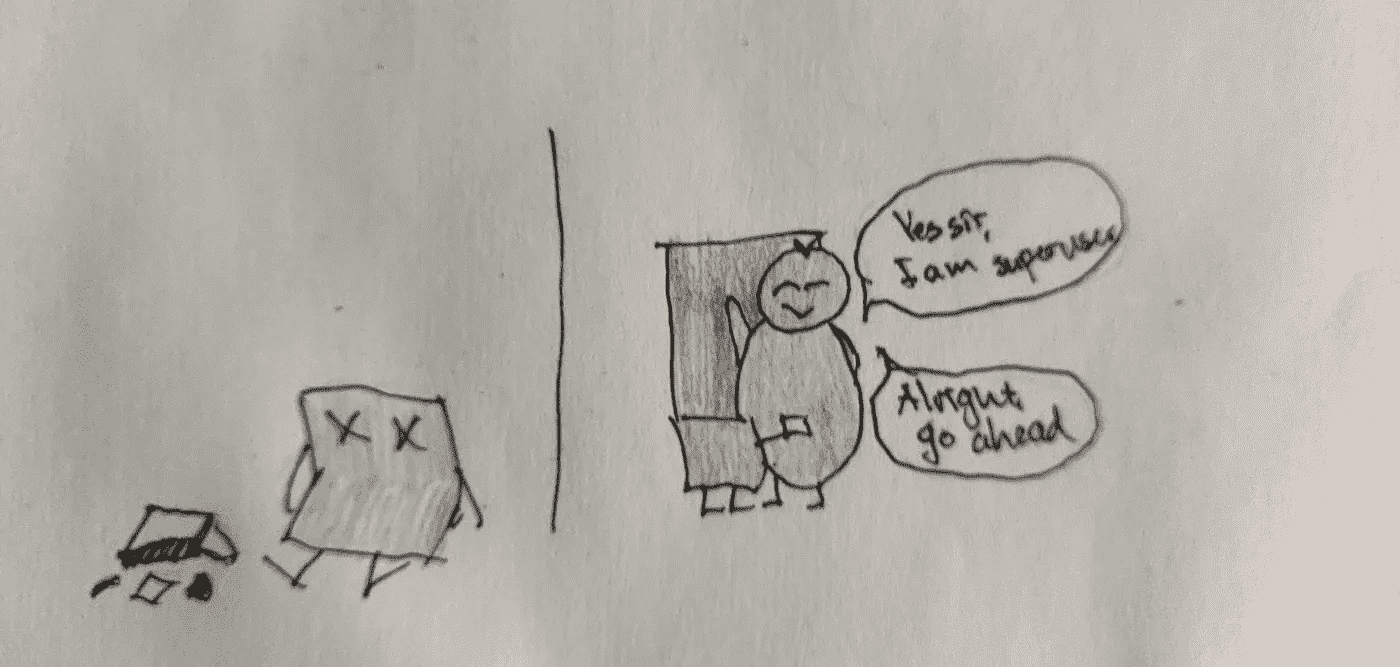 Yes sir,
I am superuser
Alright,
go ahead